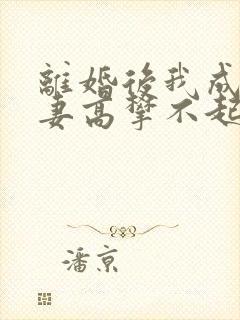 離婚後我成
妻高攀不起
潘京